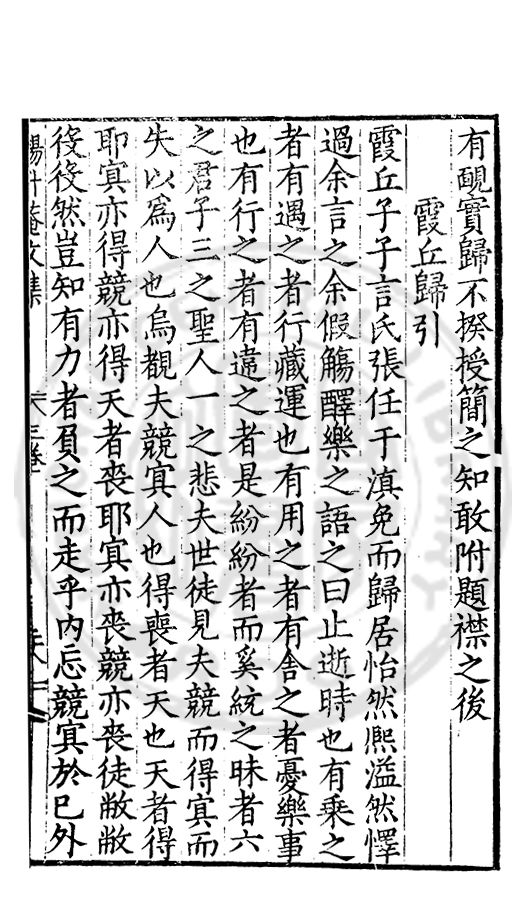 有靦實歸不揆授簡之知敢附題襟之後
霞丘歸引
霞丘子子言氏張任于滇免而歸居怡然熈溢然懌
過余言之余假觴醳樂之語之曰止逝時也有乗之
者有遇之者行藏運也有用之者有舎之者憂樂事
也有行之者有違之者是紛紛者而奚統之昧者六
之君子三之聖人一之悲夫世徒見夫競而得寘而
失以爲人也烏覩夫競寘人也得喪者天也天者得
耶寘亦得競亦得天者喪耶寘亦喪競亦喪徒敝敝
役役然豈知有力者負之而走乎内忘競寘於已外
楊升菴文集 三卷